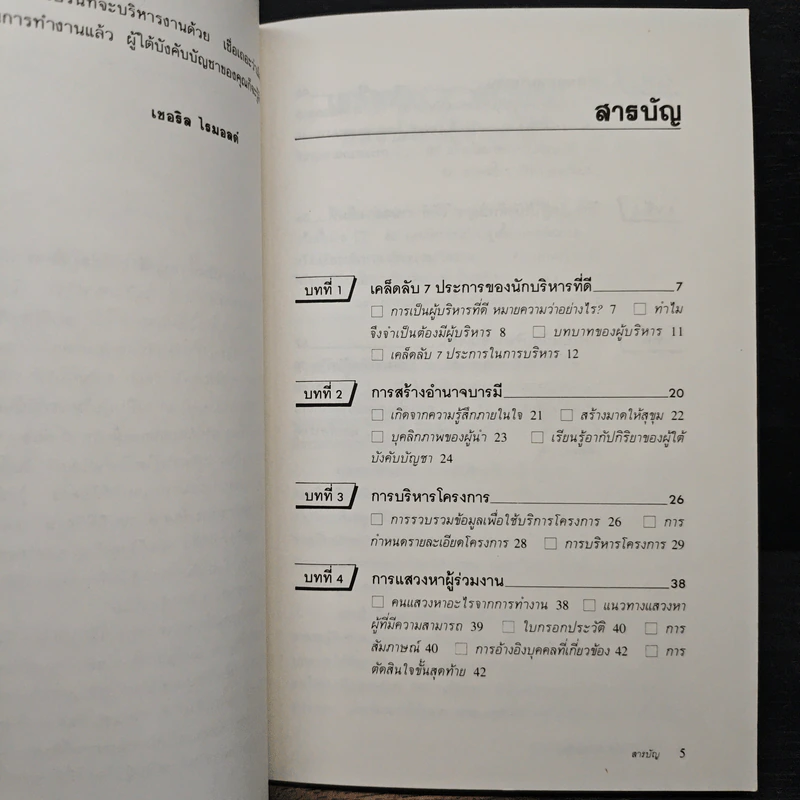 ที่จะบริหารงานด้วย เชื่อเถอะว่า
การทำงานแล้ว ผู้ใต้บังคับบัญชาของคุณก็จะ
เชอริล ไรมอลด์
สารบัญ
บทที่ 1 เคล็ดลับ 7 ประการของนักบริหารที่ดี 7
□ การเป็นผู้บริหารที่ดี หมายความว่าอย่างไร? 7 □ ทำไม
จึงจำเป็นต้องมีผู้บริหาร 8 □ บทบาทของผู้บริหาร 11
□ เคล็ดลับ 7 ประการในการบริหาร 12
บทที่ 2 การสร้างอำนาจบารมี 20
□ เกิดจากความรู้สึกภายในใจ 21 □ สร้างมาดให้สุขุม 22
□ บุคลิกภาพของผู้นำ 23 □ เรียนรู้อากัปกิริยาของผู้ใต้
บังคับบัญชา 24
บทที่ 3 การบริหารโครงการ 26
□ การรวบรวมข้อมูลเพื่อใช้บริการโครงการ 26 □ การ
กำหนดรายละเอียดโครงการ 28 □ การบริหารโครงการ 29
บทที่ 4 การแสวงหาผู้ร่วมงาน 38
□ คนแสวงหาอะไรจากการทำงาน 38 □ แนวทางแสวงหา
ผู้ที่มีความสามารถ 39 □ ใบกรอกประวัติ 40 □ การ
สัมภาษณ์ 40 □ การอ้างอิงบุคคลที่เกี่ยวข้อง 42 □ การ
ตัดสินใจขั้นสุดท้าย 42
สารบัญ 5